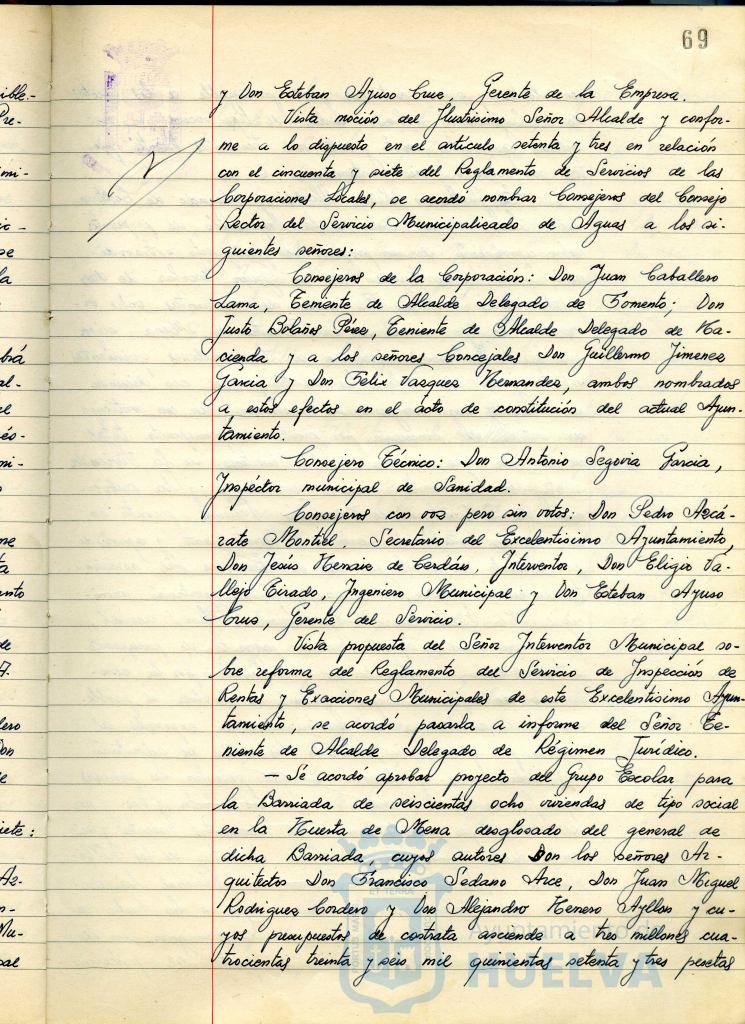 69
y Don Esteban Ayuso Cruz, Gerente de la Empresa.
Vista moción del Ilustrísimo Señor Alcalde y confor-
me a lo dispuesto en el artículo setenta y tres en relación
con el cincuenta y siete del Reglamento de Servicios de las
Corporaciones Locales, se acordó nombrar Consejeros del Consejo
Rector del Servicio Municipalizado de Aguas a los si-
guientes señores:
Consejeros de la Corporación: Don Juan Caballero
Lama, Teniente de Alcalde Delegado de Fomento; Don
Justo Bolaños Pérez, Teniente de Alcalde Delegado de Ha-
cienda y a los señores Concejales Don Guillermo Jimenez
Garcia y Don Félix Vazquez Hernandez, ambos nombrados
a estos efectos en el acto de constitución del actual Ayun-
tamiento.
Consejero Técnico: Don Antonio Segovia Garcia,
Inspéctor municipal de Sanidad.
Consejeros con voz pero sin votos: Don Pedro Azcá-
rate Montiel, Secretario del Excelentisimo Ayuntamiento,
Don Jesús de Cerdán, Interventor, Don Eligio Va-
llejo Tirado, Ingeniero Municipal y Don Esteban Ayuso
Cruz, Gerente del Servicio.
Vista propuesta del Señor Interventor Municipal so-
bre reforma del Reglamento del Servicio de Inspección de
Rentas y Exacciones Municipales de este Excelentisimo Ayun-
tamiento, se acordó pasarla a informe del Señor Te-
niente de Alcalde Delegado de Régimen Jurídico.
- Sé acordó aprobar proyecto del Grupo Escolar para
la Barriada de seiscientas ocho viviendas de tipo social
en la Huerta de Mena desglosado del general de
dicha Barriada, cuyos autores son los señores Ar-
quitectos Don Francisco Sedano Arce, Don Juan Miguel
Rodriguez Cordero y Don Alejandro Herrero Ayllon y cu-
yos presupuestos de contrata asciende a tres millones cua-
trocientas treinta y seis mil quinientas setenta y tres pesetas
Ayuntamiento de
HUELVA